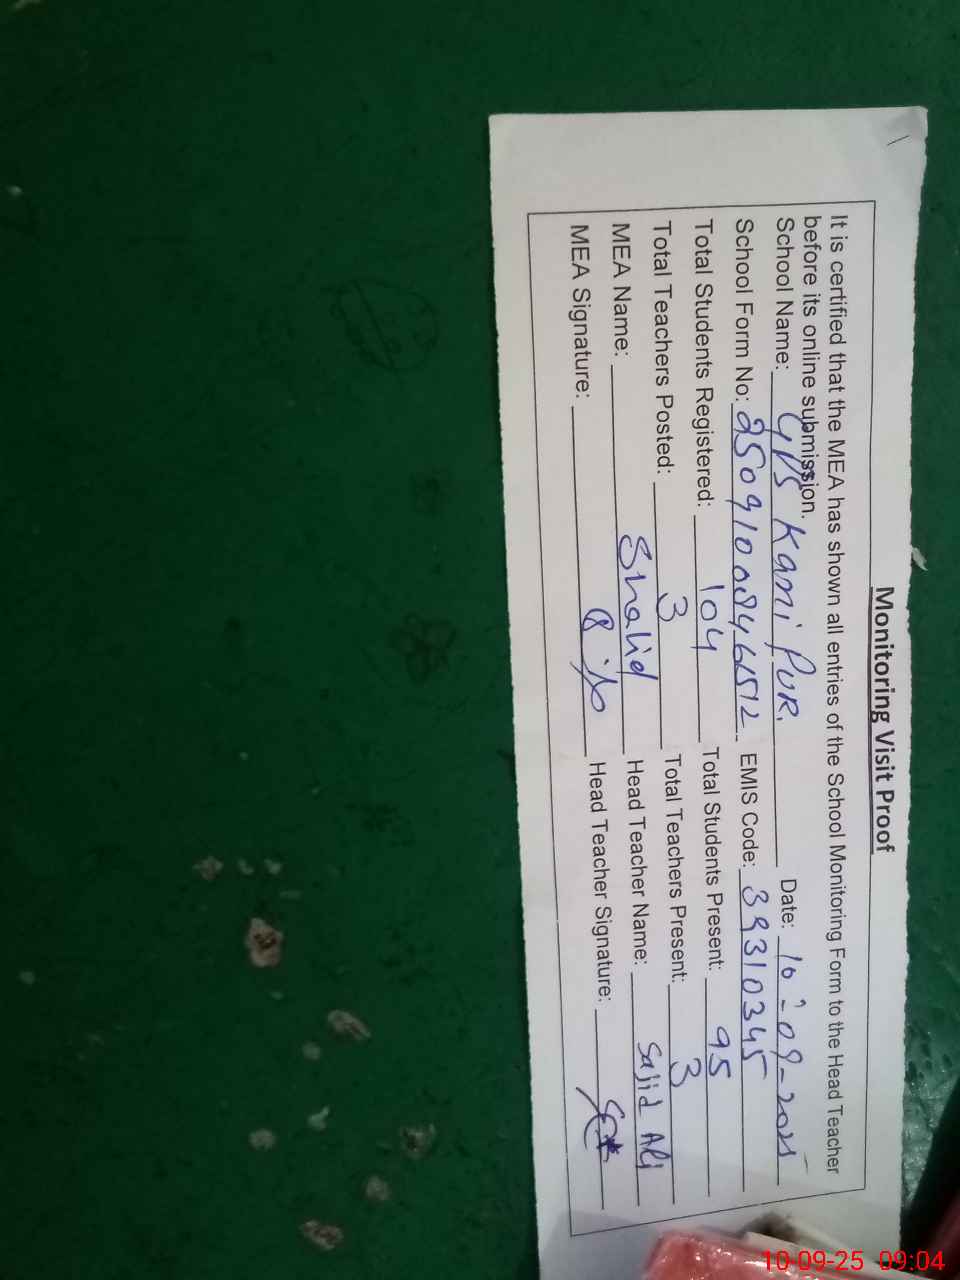 Monitoring Visit Proof
It is certified that the MEA has shown all entries of the School Monitoring Form to the Head Teacher
before its online submission.
School Name: GPS Kami PUR. Date: 10-09-2025
School Form No: 250910084661512 EMIS Code: 39310345
Total Students Registered: 104 Total Students Present: 95
Total Teachers Posted: 3 Total Teachers Present: 3
MEA Name: Shalid Head Teacher Name: Sajid Ali
MEA Signature: Head Teacher Signature:
10-09-25 09:04